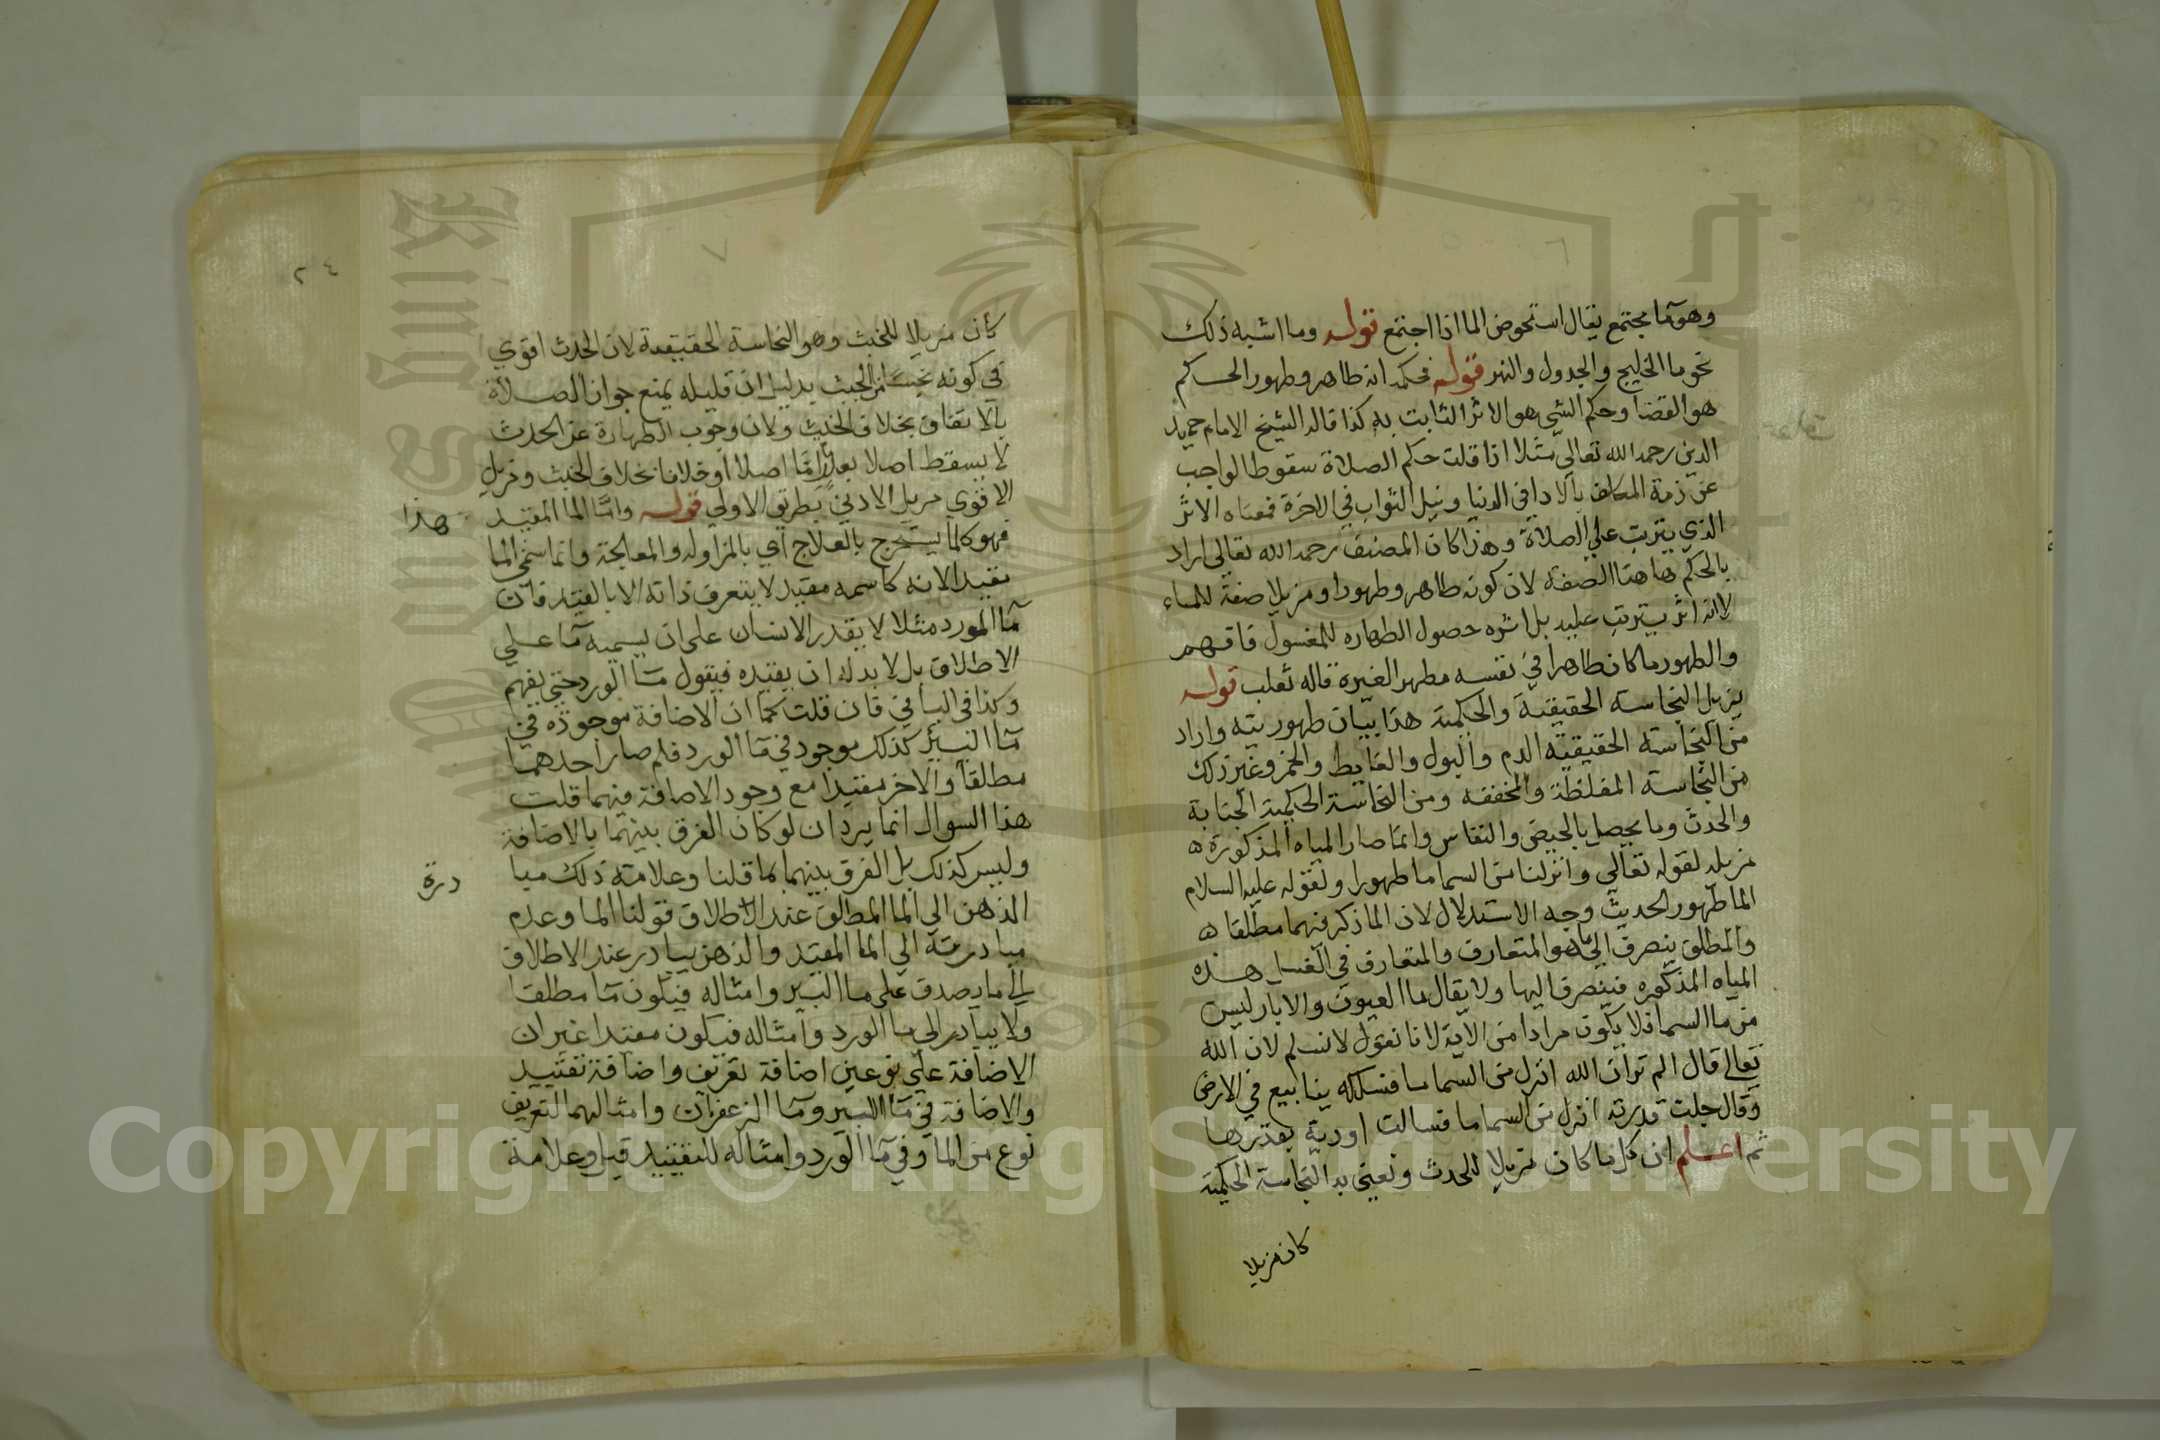 وهو ما مجتمع يقال استحوض الما اذا اجتمع قوله وما اشبه ذلك
نحو ما الخليج والجدول والنهر قوله فحكمه انه طاهر وطهور الحكم
هو القضا وحكم الشي هو الاثر الثابت به كذا قاله الشيخ الامام حميد
الدين رحمه الله تعالي مثلا اذا قلت حكم الصلاة سقوط الواجب
عن ذمة المكلف بالادا في الدنيا ونيل الثواب في الاخرة فمعناه الاثر
الذي يترتب علي الصلاة وهذا كان المصنف رحمه الله تعالي اراد
بالحكم هاهنا الصفة لان كونه طاهر وطهورا ومزيلا صفة للماء
لا انه اثر يترتب عليه بل اثره حصول الطهاره للمغسول فافهم
والطهور ما كان طاهرا في نفسه مطهرا لغيره قاله ثعلب قوله
يزيل النجاسة الحقيقية والحكمية هذا بيان طهوريته واراد
من النجاسته الحقيقيه الدم والبول والغايط والخمر وغير ذلك
من النجاسة المغلظة والمخففه ومن النجاسة الحكمية الجنابة
والحدث وما يحصل بالحيض والنفاس وانما صار المياه المذكورة
مزيله لقوله تعالي وانزلنا من السما ما طهورا ولقوله عليه السلام
الما طهور الحديث وجه الاستدلال لان الما ذكر فيهما مطلقا
والمطلق ينصرف الي ما هو المتعارف والمتعارف في الغسل هذه
المياه المذكوره فينصرف اليها ولا يقال ما العيون والابار ليس
من ما السما فلا يكون مرادا من الاية لانا نقول لا نسلم لان الله
تعالي قال الم تر ان الله انزل من السما ما فسلكه ينابيع في الارض
وقال جلت قدرته انزل من السما ما فسالت اودية بقدرها
ثم اعلم ان كل ما كان مزيلا للحدث ونعني به النجاسة الحكمية
كان مزيلا
٢٤
كان مزيلا للخبث وهو النجاسة الحقيقية لان الحدث اقوي
في كونه نجسا من الخبث بدليل ان قليله يمنع جواز الصلاة
بالاتفاق بخلاف الخبث ولان وجوب الطهارة عن الحدث
لا يسقط اصلا بعذر اما اصلا او خلافا بخلاف الخبث ومزيل
الاقوي مزيل الادني بطريق الاولي قوله واما الما المقيد
فهو كالما يستخرج بالعلاج اي بالمزاوله والمعالجة وانما سمي الما
هذا
مقيدا لانه كاسمه مقيد لا يتعرف ذاته الا بالقيد فان
ما الورد مثلا لا يقدر الانسان علي ان يسميه ما علي
الاطلاق بل لا بد له ان يقيده فيقول ما الورد حتي يفهم
وكذا في الباقي فان قلت كما ان الاضافة موجوده في
ما البير كذلك موجود في ما الورد فلم صار احدهما
مطلقا والاخر مقيدا مع وجود الاضافة فيهما قلت
هذا السوال انما يرد ان لو كان الفرق بينهما بالاضافة
وليس كذلك بل الفرق بينهما ما قلنا وعلامة ذلك مبا
درة
الذهن الي الما المطلق عند الاطلاق قولنا الما وعدم
مبادرته الي الما المقيد والذهن يبادر عند الاطلاق
الي ما يصدق علي ما البير وامثاله فيكون ما مطلقا
ولا يبادر الي ما الورد وامثاله فيكون مقيدا غير ان
الاضافة علي نوعين اضافة تعريف واضافة تقييد
والاضافة في ما البير وما الزعفران وامثالهما لتعريف
نوع من الما وفي ما الورد وامثاله للتقييد قيل وعلامة
Copyright © King Saud University
King Saud University